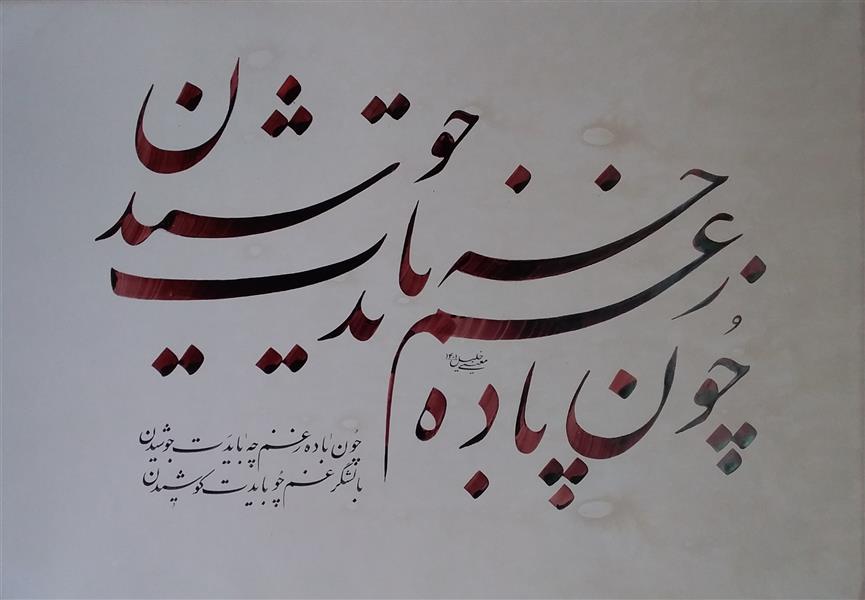 چُون باده ز غم چه بایدت جوشیدن
چُون باده ز غم چه بایدت جوشیدن
با لشگر غم چُو بایدت کوشیدن